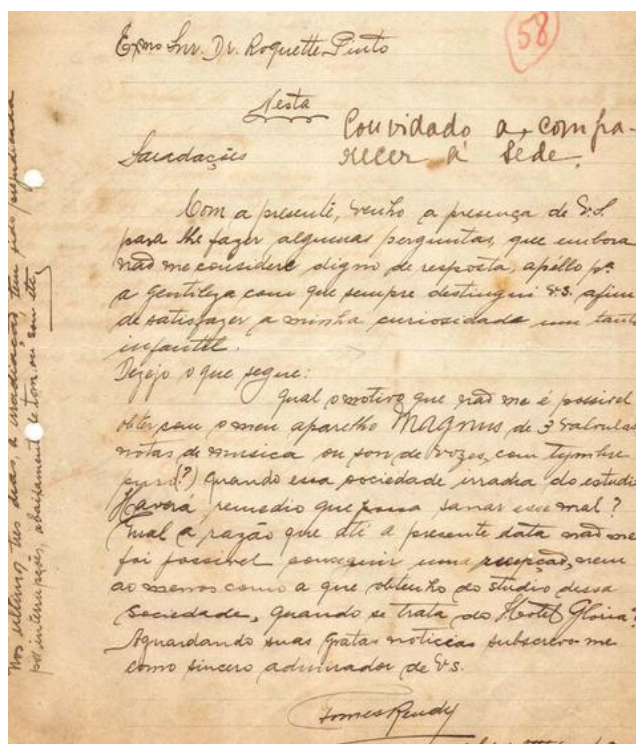 58
Exmo Snr. Dr. Roquette Pinto
Nesta
Convidado a compa-
recer á sede.
Saudações
Com a presente, venho a presença de V.S.
para lhe fazer algumas perguntas, que embora
não me considere digno de resposta, apéllo pª
a gentileza com que sempre destingui V.S. afim
de satisfazer a minha curiosidade um tanto
infantil.
Dezejo o que segue:
Qual o motivo que não me é possivel
obter com o meu aparelho Magnus de 3 valvulas
notas de musica ou son de vozes, com tymbre
puro (?) quando essa sociedade irradia do estudio
Haverá remedio que possa sanar esse mal?
Qual a razão que até a presente data não me
foi possivel conseguir uma recepção, nem
ao menos como a que obtenho do studio dessa
Sociedade, quando se trata do Hotel Gloria?
Aguardando suas gratas noticias subscrevo-me
como sincero admirador de V.S.
Nos ultimos tres dias, a irradiação, tem sido prejudicada
por interrupções, abaixamento de ton. ou son etc.